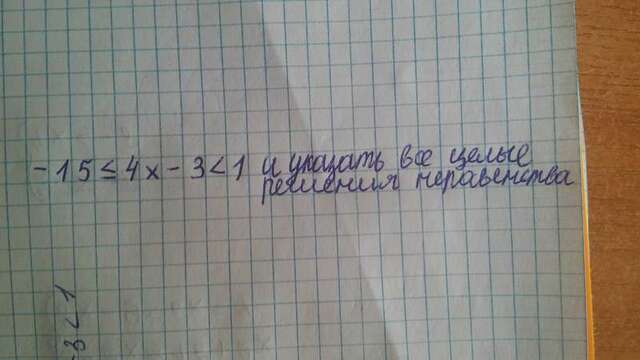 -15 ≤ 4x - 3 < 1 и указать все целые
решения неравенства
-3 < 1